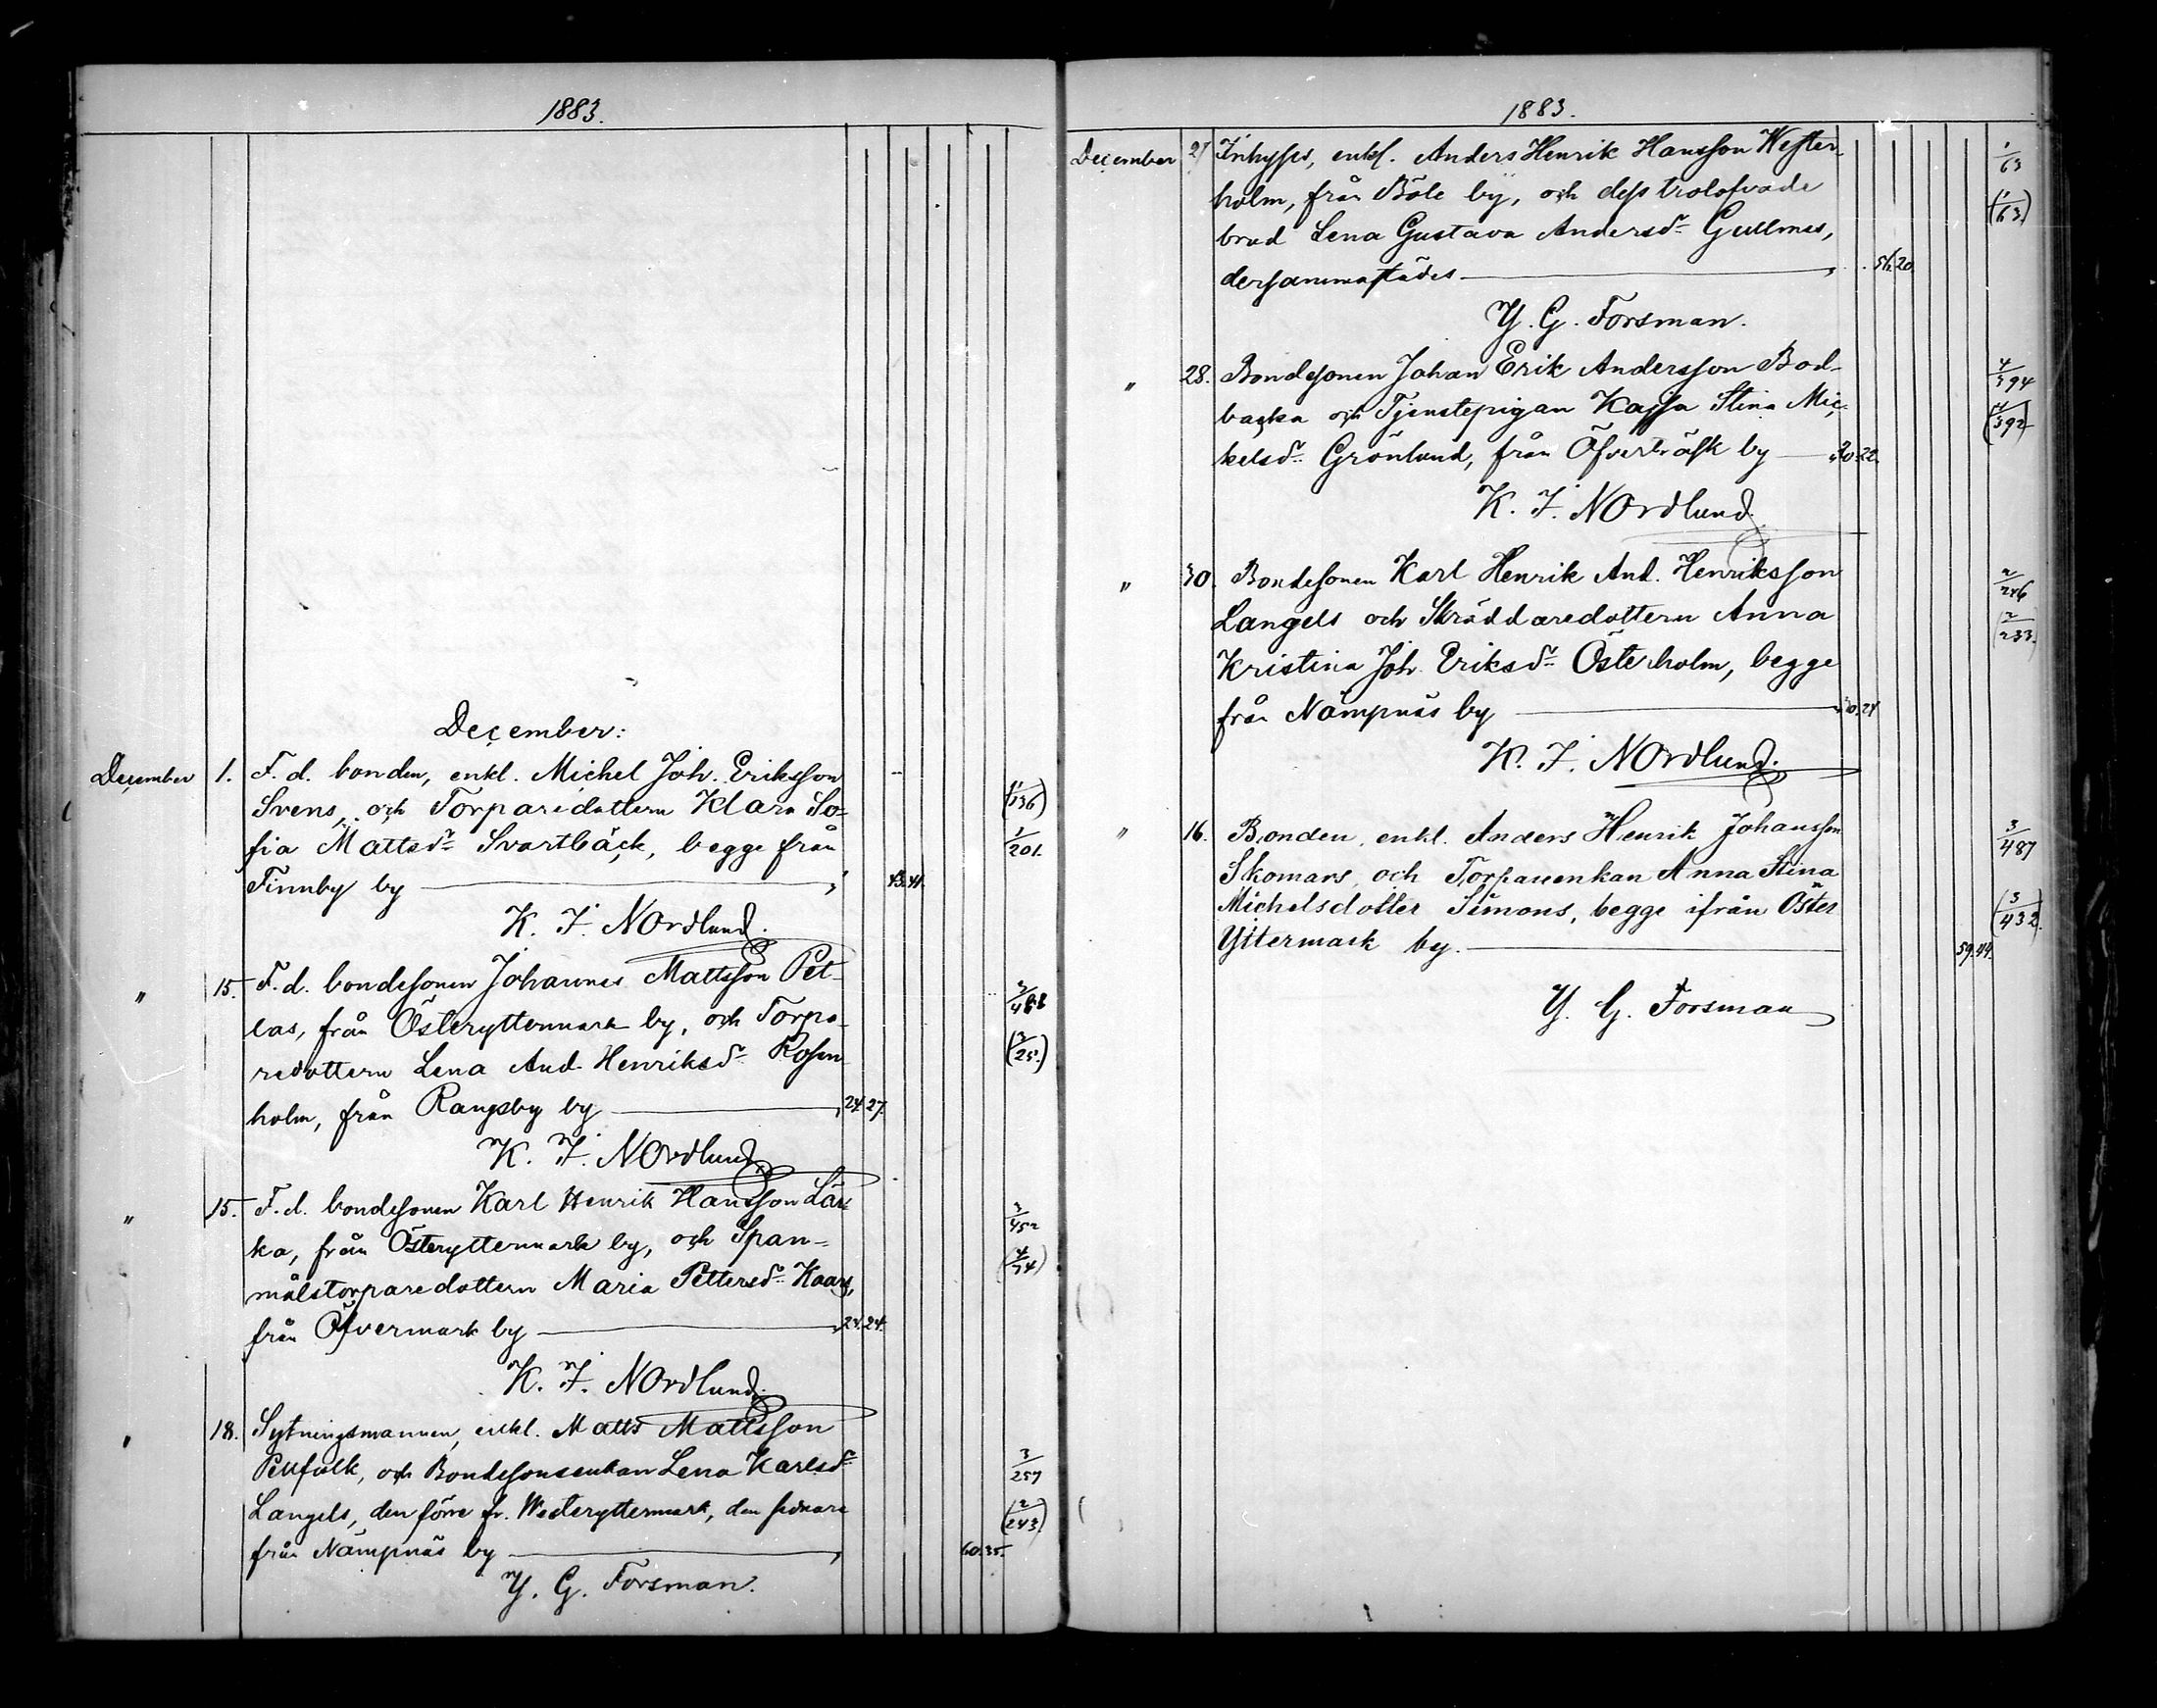 1883.
December:
December 1. F. d. bonden, enkl. Michel Joh. Eriksson
Svens, och Torparedottern Klara So- (1/136)
fia Mattsdr Svartbäck, begge från 1/201.
Finnby by 43. 41.
K. J. Nordlund.
" 15. F. d. bondesonen Johannes Mattsson Pet-
las, från Österyttermark by, och Torpa-
redottern Lena And. Henriksdr Rosen- (3/25.)
holm, från Rangsby by 24. 27.
K. J. Nordlund.
" 15. F. d. bondesonen Karl Henrik Hansson Lås- 3/452
ka, från Österyttermark by, och Span- (4/74)
målstorparedottern Maria Pettersdr Kaars,
från Öfvermark by 24. 24.
K. J. Nordlund.
" 18. Sytningsmannen, enkl. Matts Mattsson
Pellfolk, och Bondesonsenkan Lena Karlsdr 3/257
Langels, den förre fr. Westeryttermark, den senare (2/243)
från Nämpnäs by 60. 35.
Y. G. Forsman.
1883.
December 27 Inhyses, enkl. Anders Henrik Hansson Wester- 1/63
holm, från Böle by, och dess trolofvade (1/63)
brud Lena Gustava Andersdr Gullmes,
dersammastädes 51/2 20.
Y. G. Forsman.
" 28. Bondesonen Johan Erik Andersson Bod- 4/394
backa och Tjenstepigan Kajsa Stina Mic- (4/392)
kelsdr Grönlund, från Öfverträsk by 20. 22.
K. J. Nordlund.
" 30. Bondesonen Karl Henrik And. Henriksson 2/246
Langels och Skräddaredottern Anna (2/233.)
Kristina Joh. Eriksdr Österholm, begge
från Nämpnäs by 20. 21
K. J. Nordlund.
" 16. Bonden, enkl. Anders Henrik Johansson 3/487
Skomars, och Torpareenkan Anna Stina
Michelsdotter Simons, begge ifrån Öster (3/432.)
Yttermark by. 59. 44.
Y. G. Forsman